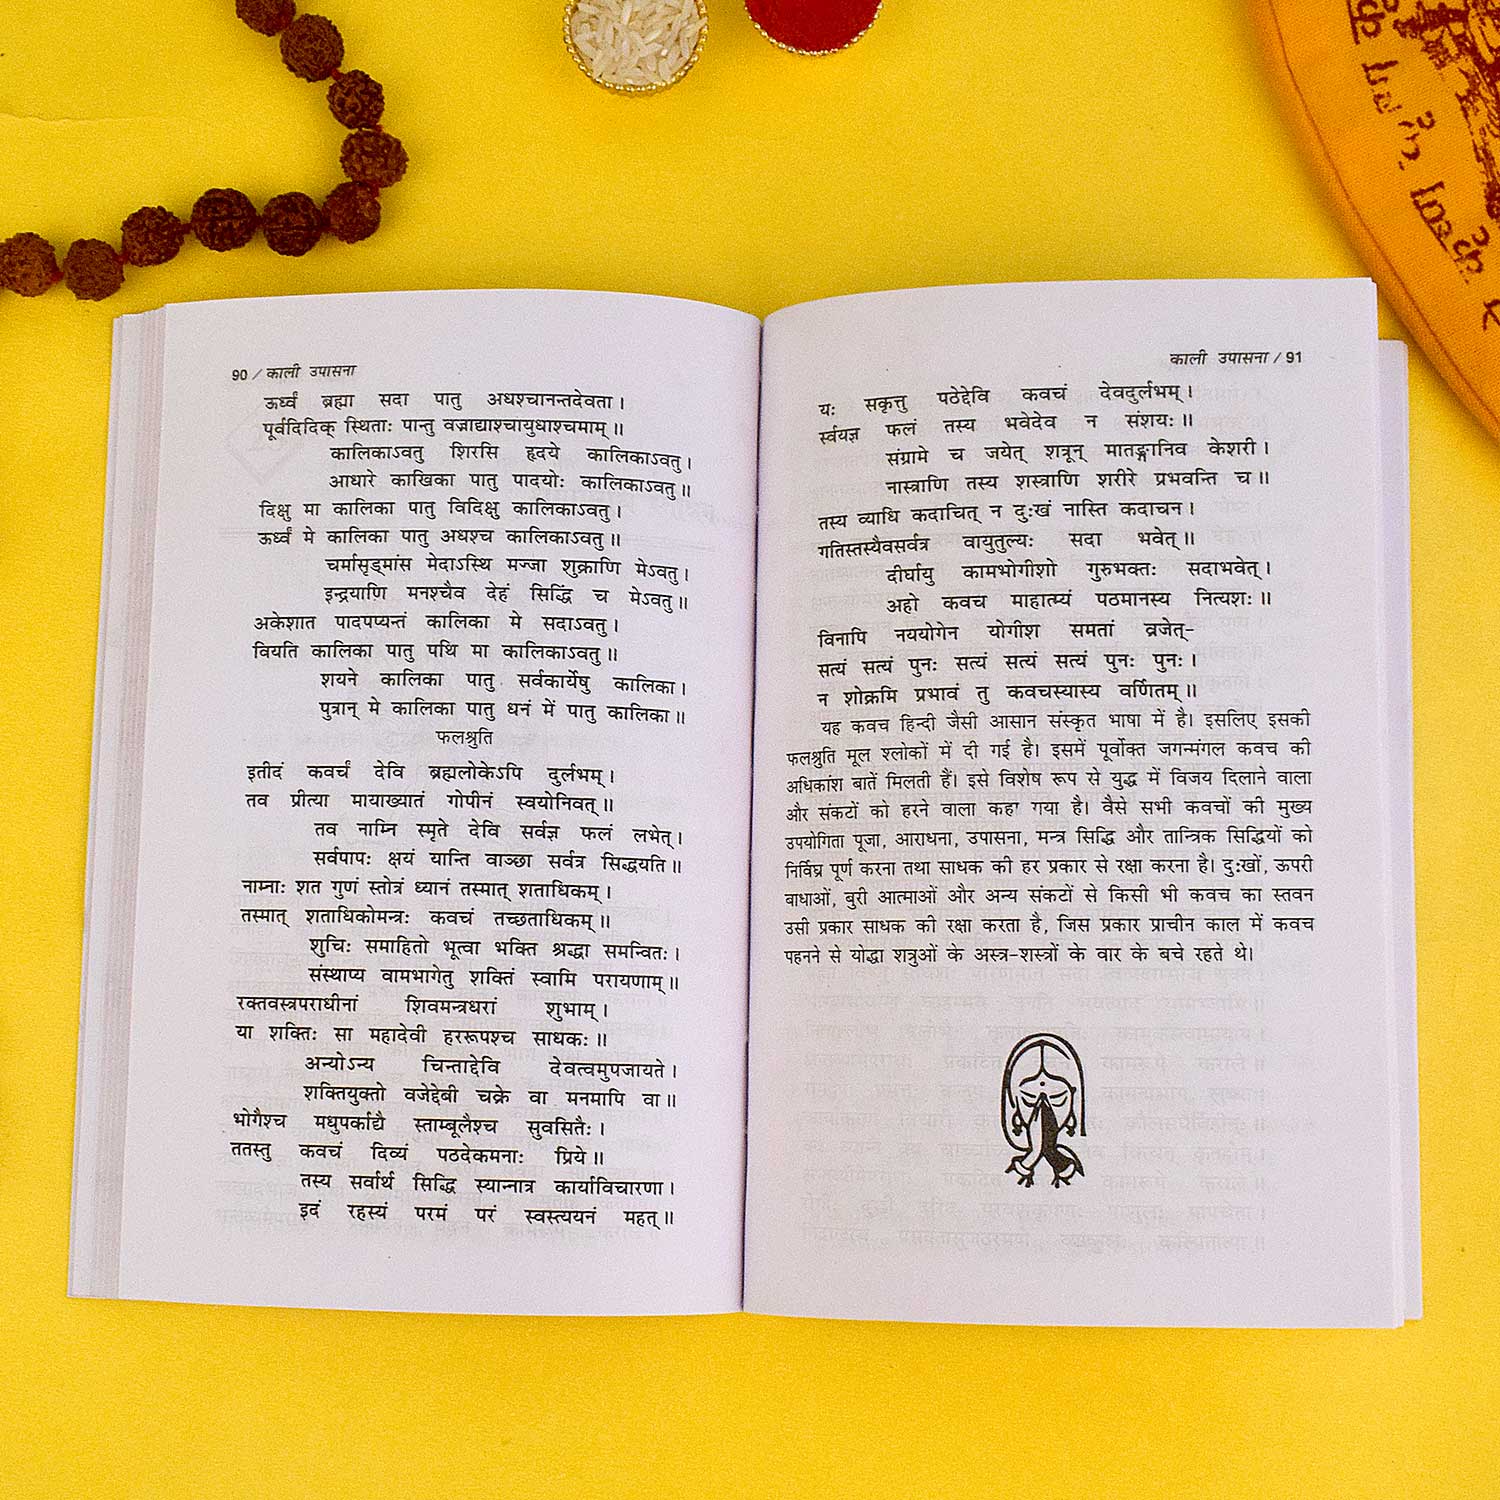 90 / काली उपासना
ऊर्ध्वं ब्रह्मा सदा पातु अधश्चानन्तदेवता।
पूर्वदिदिक् स्थिताः पान्तु वज्राद्याश्चायुधाश्चमाम्॥
कालिकाऽवतु शिरसि हृदये कालिकाऽवतु।
आधारे काखिका पातु पादयोः कालिकाऽवतु॥
दिक्षु मा कालिका पातु विदिक्षु कालिकाऽवतु।
ऊर्ध्वं मे कालिका पातु अधश्च कालिकाऽवतु॥
चर्मासृड्मांस मेदाऽस्थि मज्जा शुक्राणि मेऽवतु।
इन्द्रयाणि मनश्चैव देहं सिद्धिं च मेऽवतु॥
अकेशात पादपप्यन्तं कालिका मे सदाऽवतु।
वियति कालिका पातु पथि मा कालिकाऽवतु॥
शयने कालिका पातु सर्वकार्येषु कालिका।
पुत्रान् मे कालिका पातु धनं में पातु कालिका॥
फलश्रुति
इतीदं कवर्चं देवि ब्रह्मलोकेऽपि दुर्लभम्।
तव प्रीत्या मायाख्यातं गोपीनं स्वयोनिवत्॥
तव नाम्नि स्मृते देवि सर्वज्ञ फलं लभेत्।
सर्वपापः क्षयं यान्ति वाञ्छा सर्वत्र सिद्धयति॥
नाम्नाः शत गुणं स्तोत्रं ध्यानं तस्मात् शताधिकम्।
तस्मात् शताधिकोमन्त्रः कवचं तच्छताधिकम्॥
शुचिः समाहितो भूत्वा भक्ति श्रद्धा समन्वितः।
संस्थाप्य वामभागेतु शक्तिं स्वामि परायणाम्॥
रक्तवस्त्रपराधीनां शिवमन्त्रधरां शुभाम्।
या शक्तिः सा महादेवी हररूपश्च साधकः॥
अन्योऽन्य चिन्ताद्देवि देवत्वमुपजायते।
शक्तियुक्तो वजेद्देबी चक्रे वा मनमापि वा॥
भोगैश्च मधुपर्काद्यै स्ताम्बूलैश्च सुवसितैः।
ततस्तु कवचं दिव्यं पठदेकमनाः प्रिये॥
तस्य सर्वार्थ सिद्धि स्यान्नात्र कार्याविचारणा।
इदं रहस्यं परमं परं स्वस्त्ययनं महत्॥
काली उपासना / 91
यः सकृत्तु पठेद्देवि कवचं देवदुर्लभम्।
र्स्वयज्ञ फलं तस्य भवेदेव न संशयः॥
संग्रामे च जयेत् शत्रून् मातङ्गानिव केशरी।
नास्त्राणि तस्य शस्त्राणि शरीरे प्रभवन्ति च॥
तस्य व्याधि कदाचित् न दुःखं नास्ति कदाचन।
गतिस्तस्यैवसर्वत्र वायुतुल्यः सदा भवेत्॥
दीर्घायु कामभोगीशो गुरुभक्तः सदाभवेत्।
अहो कवच माहात्म्यं पठमानस्य नित्यशः॥
विनापि नययोगेन योगीश समतां व्रजेत्-
सत्यं सत्यं पुनः सत्यं सत्यं सत्यं पुनः पुनः।
न शोक्रमि प्रभावं तु कवचस्यास्य वर्णितम्॥
यह कवच हिन्दी जैसी आसान संस्कृत भाषा में है। इसलिए इसकी
फलश्रुति मूल श्लोकों में दी गई है। इसमें पूर्वोक्त जगन्मंगल कवच की
अधिकांश बातें मिलती हैं। इसे विशेष रूप से युद्ध में विजय दिलाने वाला
और संकटों को हरने वाला कहा गया है। वैसे सभी कवचों की मुख्य
उपयोगिता पूजा, आराधना, उपासना, मन्त्र सिद्धि और तान्त्रिक सिद्धियों को
निर्विघ्र पूर्ण करना तथा साधक की हर प्रकार से रक्षा करना है। दुःखों, ऊपरी
बाधाओं, बुरी आत्माओं और अन्य संकटों से किसी भी कवच का स्तवन
उसी प्रकार साधक की रक्षा करता है, जिस प्रकार प्राचीन काल में कवच
पहनने से योद्धा शत्रुओं के अस्त्र-शस्त्रों के वार के बचे रहते थे।